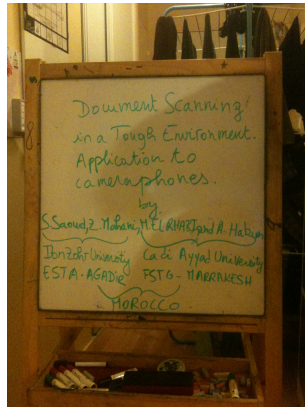 Document Scanning
in a Tough Environment.
Application to
cameraphones.
by
S.Saoud, Z. Mahani, M.EL RHAZI and A. Habsan
IbnZohr University Cadi Ayyad University
ESTA-AGADIR FSTG-MARRAKESH
MOROCCO